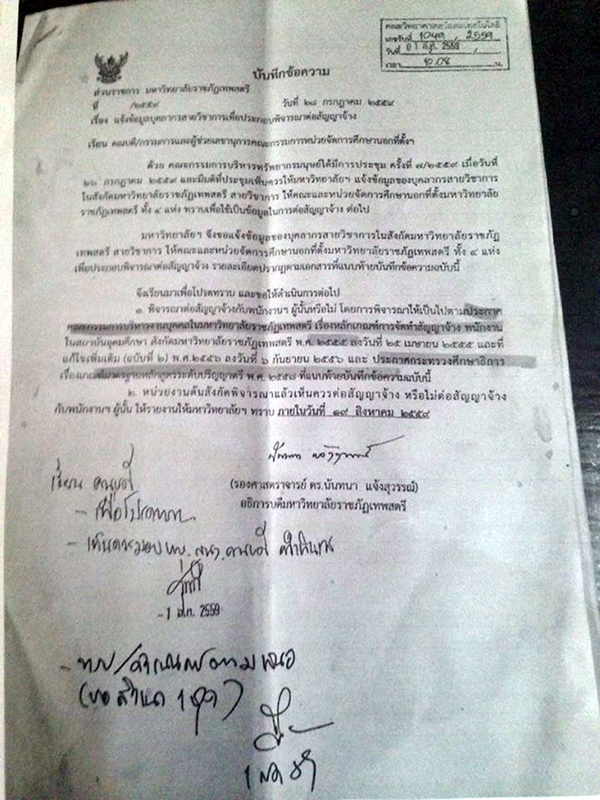 คณะวิทยาศาสตร์และเทคโนโลยี
เลขรับที่ 1049 / 2559
วันที่ 01 ส.ค. 2559
เวลา 10.08 น.
บันทึกข้อความ
ส่วนราชการ มหาวิทยาลัยราชภัฏเทพสตรี
ที่ /๒๕๕๙ วันที่ ๒๘ กรกฎาคม ๒๕๕๙
เรื่อง แจ้งข้อมูลบุคลากรสายวิชาการเพื่อประกอบพิจารณาต่อสัญญาจ้าง
เรียน คณบดี/กรรมการและผู้ช่วยเลขานุการคณะกรรมการหน่วยจัดการศึกษานอกที่ตั้งฯ
ด้วย คณะกรรมการบริหารทรัพยากรมนุษย์ได้มีการประชุม ครั้งที่ ๗/๒๕๕๙ เมื่อวันที่
๒๖ กรกฎาคม ๒๕๕๙ และมีมติที่ประชุมเห็นควรให้มหาวิทยาลัยฯ แจ้งข้อมูลของบุคลากรสายวิชาการ
ในสังกัดมหาวิทยาลัยราชภัฏเทพสตรี สายวิชาการ ให้คณะและหน่วยจัดการศึกษานอกที่ตั้งมหาวิทยาลัย
ราชภัฏเทพสตรี ทั้ง ๔ แห่ง ทราบเพื่อใช้เป็นข้อมูลในการต่อสัญญาจ้าง ต่อไป
มหาวิทยาลัยฯ จึงขอแจ้งข้อมูลของบุคลากรสายวิชาการในสังกัดมหาวิทยาลัยราชภัฏ
เทพสตรี สายวิชาการ ให้คณะและหน่วยจัดการศึกษานอกที่ตั้งมหาวิทยาลัยราชภัฏเทพสตรี ทั้ง ๔ แห่ง
เพื่อประกอบพิจารณาต่อสัญญาจ้าง รายละเอียดปรากฏตามเอกสารที่แนบท้ายบันทึกข้อความฉบับนี้
จึงเรียนมาเพื่อโปรดทราบ และขอให้ดำเนินการต่อไป
๑. พิจารณาต่อสัญญาจ้างกับพนักงานฯ ผู้นั้นหรือไม่ โดยการพิจารณาให้เป็นไปตามประกาศ
คณะกรรมการบริหารงานบุคคลในมหาวิทยาลัยราชภัฏเทพสตรี เรื่องหลักเกณฑ์การจัดทำสัญญาจ้าง พนักงาน
ในสถาบันอุดมศึกษา สังกัดมหาวิทยาลัยราชภัฏเทพสตรี พ.ศ.๒๕๕๕ ลงวันที่ ๒๕ เมษายน ๒๕๕๕ และที่
แก้ไขเพิ่มเติม (ฉบับที่ ๒) พ.ศ.๒๕๕๖ ลงวันที่ ๖ กันยายน ๒๕๕๖ และ ประกาศกระทรวงศึกษาธิการ
เรื่องเกณฑ์มาตรฐานหลักสูตรระดับปริญญาตรี พ.ศ. ๒๕๕๘ ที่แนบท้ายบันทึกข้อความฉบับนี้
๒. หน่วยงานต้นสังกัดพิจารณาแล้วเห็นควรต่อสัญญาจ้าง หรือไม่ต่อสัญญาจ้าง
กับพนักงานฯ ผู้นั้น ให้รายงานให้มหาวิทยาลัยฯ ทราบ ภายในวันที่ ๑๙ สิงหาคม ๒๕๕๙
(รองศาสตราจารย์ ดร.นันทนา แจ้งสุวรรณ์)
อธิการบดีมหาวิทยาลัยราชภัฏเทพสตรี
เรียน คณบดี
- เพื่อโปรดทราบ
- เห็นควรมอบ
- 1 ส.ค. 2559